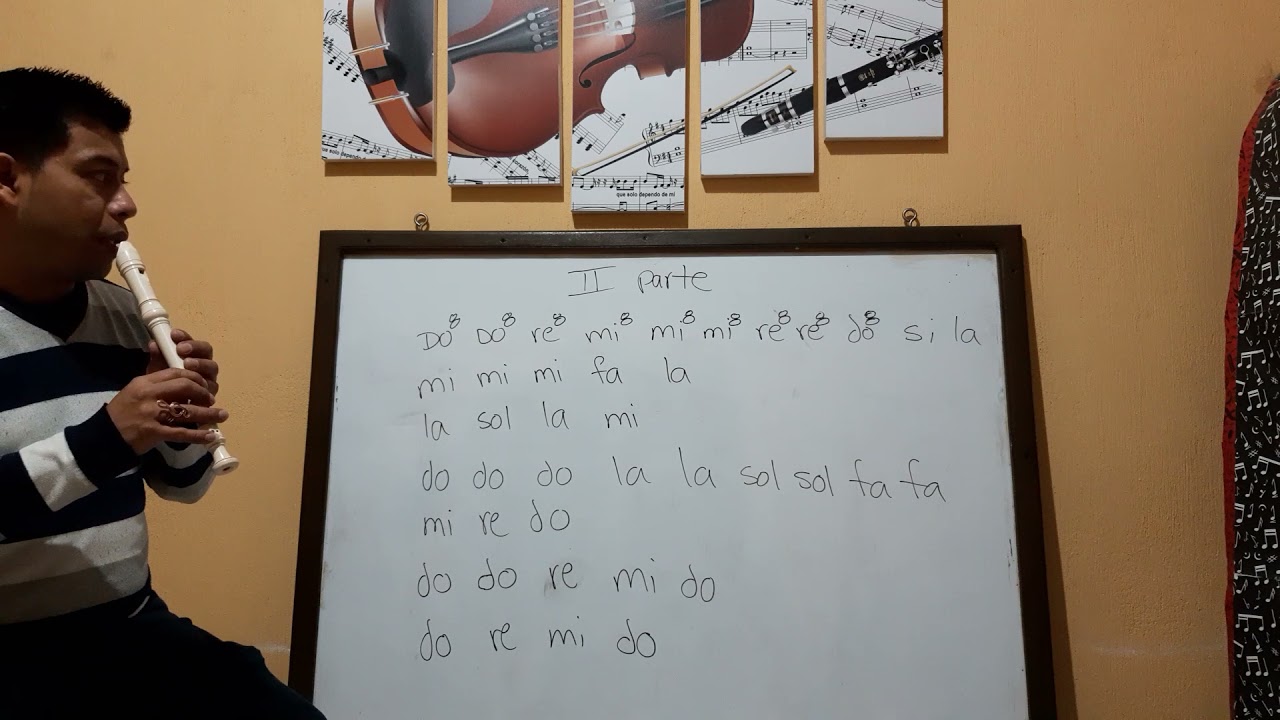 que solo depende
que solo dependo de mi
II parte
DO⁸ DO⁸ re⁸ mi⁸ mi⁸ mi⁸ re⁸ re⁸ do⁸ si la
mi mi mi fa la
la sol la mi
do do do la la sol sol fa fa
mi re do
do do re mi do
do re mi do